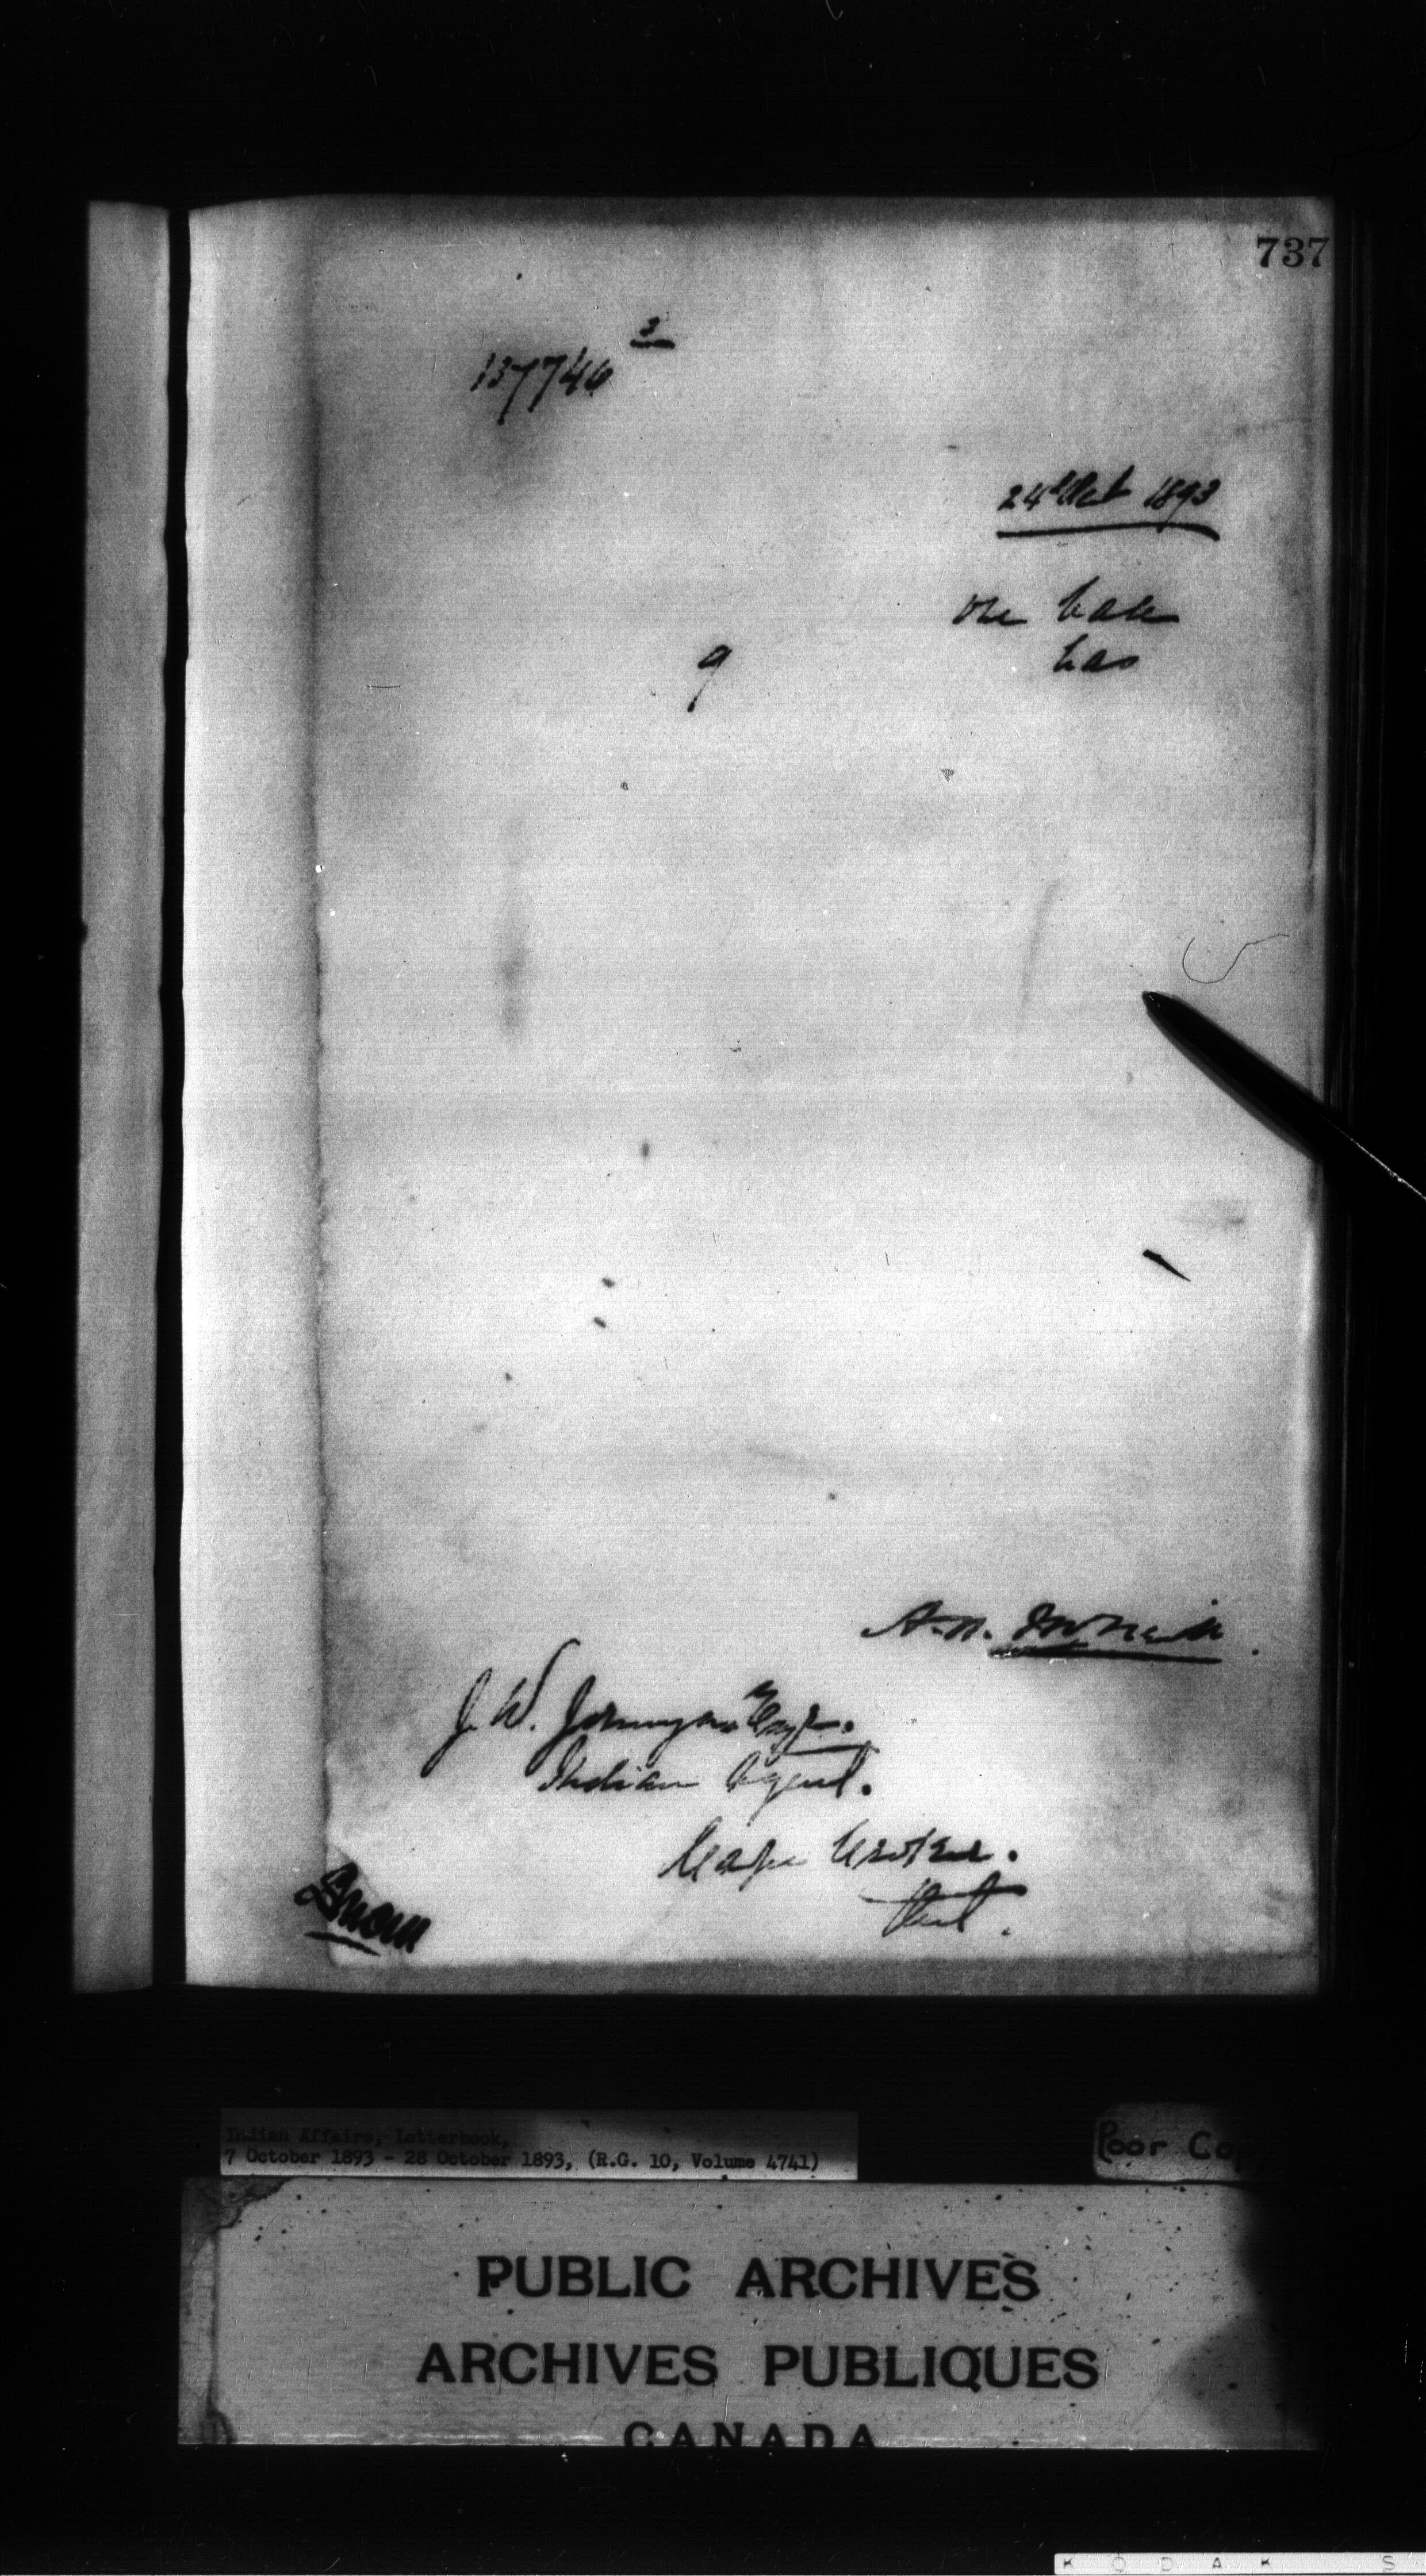 737
3
137746
24th Oct 1893
one bale
9 has
A. N. McNeill
J. W. Jermyn Esqr.
Indian Agent.
Cape Croker.
Ont.
Indian Affairs, Letterbook,
7 October 1893 - 28 October 1893, (R.G. 10, Volume 4741)
Poor Co
PUBLIC ARCHIVES
ARCHIVES PUBLIQUES
CANADA
K O D A K S